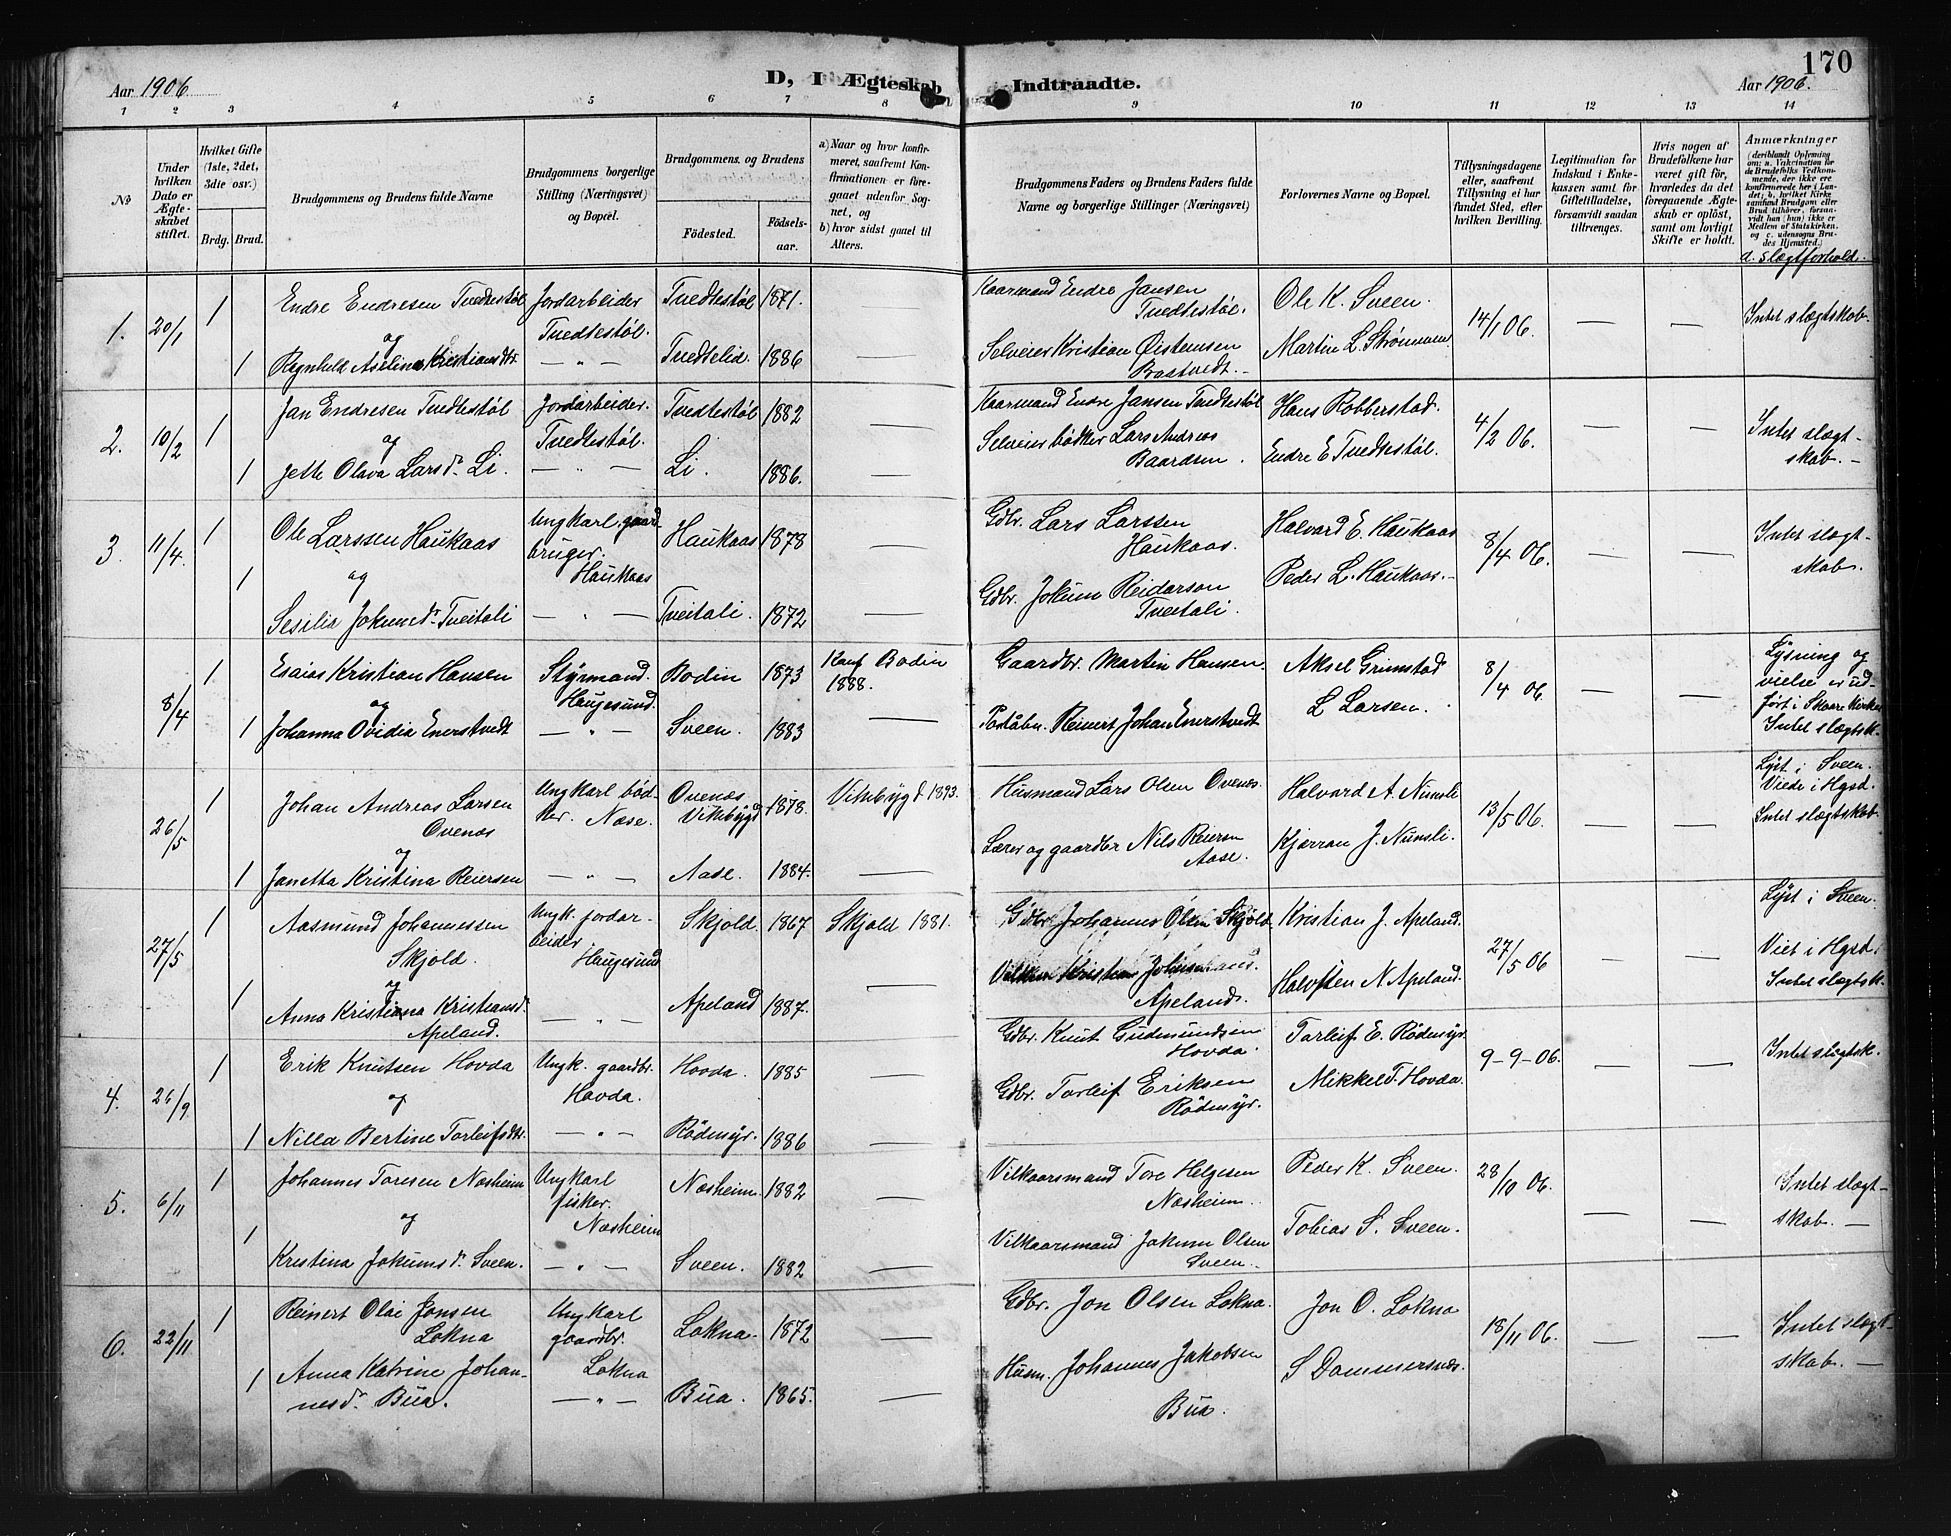 170
Aar 1906
D, I Ægteskab Indtraadte.
Aar 1906.
1 2 3 4 5 6 7 8 9 10 11 12 13 14
No
Under hvilken Dato er Ægteskabet stiftet.
Hvilket Gifte (1ste, 2det, 3die osv.)
Brdg. Brud.
Brudgommens og Brudens fulde Navne
Brudgommens borgerlige Stilling (Næringsvei) og Bopæl.
Brudgommens og Brudens
Fødested.
Fødselsaar.
a) Naar og hvor konfirmeret, saafremt Konfirmationen er foregaaet udenfor Sognet, og
b) hvor sidst gaaet til Alters.
Brudgommens Faders og Brudens Faders fulde Navne og borgerlige Stillinger (Næringsvei)
Forlovernes Navne og Bopæl.
Tillysningsdagene eller, saafremt Tillysning ei har fundet Sted, efter hvilken Bevilling.
Legitimation for Indskud i Enkekassen samt for Giftetilladelse, forsaavidt saadan tiltrænges.
Hvis nogen af Brudefolkene har været gift før, hvorledes da det foregaaende Ægteskab er opløst, samt om lovligt Skifte er holdt.
Anmærkninger
(deriblandt Oplysning om: a. Vakcination for de Brudefolks Vedkommende, der ikke ere konfirmerede her i Landet; b. hvilket Kirkesamfund Brudgom eller Brud tilhører, forsaavidt han (hun) ikke er Medlem af Statskirken, og c. udensogns Brudes Hjemsted.)
d. Slægtforhold.
1. 20/1 1 Endre Endresen Tvedtestøl Jordarbeider Tvedtestøl. Tvedtestøl 1871. — Kaarmand Endre Jansen Tvedtestøl. Ole K. Sveen. 14/1 06. — — Intet slægtskab.
og
1 Ragnhild Aselina Kristiansdtr. — " — Tvedtelid. 1886 — Selveier Kristian Øistensen Brastvedt. Martin L. Strømmen.
2. 10/2 1 Jan Endresen Tvedtestøl Jordarbeider. Tvedtestøl. Tvedtestøl 1882 — Kaarmand Endre Jansen Tvedtestøl Hans Robberstad. 4/2 06. — — Intet slægtskab. —
og
1 Jette Olava Larsdr. Li. — " — Li. 1886. — Selveier bødker Lars Andreas Baardsen. Endre E Tvedtestøl.
3. 11/4. 1 Ole Larssen Haukaas Ungkarl, gaardbruger. Haukaas Haukaas 1878 — Gdbr. Lars Larssen Haukaas. Halvard E. Haukaas 8/4 06. — — Intet slægtskab.
og
1 Sesilia Jokumsdr. Tveitali — " — Tveitali. 1872 — Gdbr. Jokum Reidarson Tveitali. Peder L. Haukaas.
8/4 1 Esaias Kristian Hansen Styrmand. Haugesund. Bodin 1873 Konf. Bodin 1888. Gaardbr. Martin Hansen. Aksel Grimstad 8/4 06. — — Lysning og vielse er udført i Skaare Kirke Intet slægtsk.
og
1 Johanna Ovidia Enerstvedt — " — Sveen. 1883 — Poståbn. Reinert Johan Enerstvedt L Larsen.
26/5 1 Johan Andreas Larsen Ovenæs Ungkarl bødker. Næse. Ovenæs Vikebygd 1878. Vikebygd 1893. Husmand Lars Olsen Ovenæs. Halvard A. Nunsli 13/5 06. — — Lyst i Sveen. Viede i Hgsd. Intet slægtskab.
og
1 Janetta Kristina Reiersen — " — Aase. 1884. — Lærer og gaardbr Nils Reiersen Aase. Kjærran J. Nunsli.
27/5 1 Aasmund Johannessen Skjold. Ungk. jordarbeider. Haugesund Skjold. 1867 Skjold 1881. Gdbr. Johannes Olsen Skjold Kristian J. Apeland. 27/5 06 — — Lyst i Sveen. Viet i Hgsd. Intet slægtsk.
og
1 Anna Kristiana Kristiansd. Apeland. — " — Apeland 1887. — Kristian Apeland. N. Apeland.
4. 26/9 1 Erik Knutsen Hovda Ungk. gaardbr. Hovda. Hovda. 1885 — Gdbr. Knut Gudmundsen Hovda. Torleif E. Rödmyr. 9-9-06. — — Intet slægtsk.
og
1 Nilla Bertine Torleifsdtr. — " — Rödmyr. 1886 — Gdbr. Torleif Eriksen Rödmyr. Mikkel T. Hovda.
5. 6/11 1 Johannes Toresen Næsheim Ungkarl fisker. Næsheim Næsheim. 1882 — Vilkaarsmand Tore Helgesen Næsheim. Peder K. Sveen. 28/10 06. — — Intet slægtskab. —
og
1 Kristina Jokumsdr. Sveen. — " — Sveen. 1882 — Vilkaarsmand Jokum Olsen Sveen. Tobias S. Sveen.
6. 22/11 1 Reinert Olai Jonsen Lokna Ungkarl gaardbr. Lokna Lokna. 1872 — Gdbr. Jon Olsen Lokna. Jon O. Lokna 18/11 06. — — Intet slægtskab. —
1 Anna Katrine Johannesdr. Bua. — " — Bua. 1865. — Husm. Johannes Jakobsen Bua. S Dommersnes.